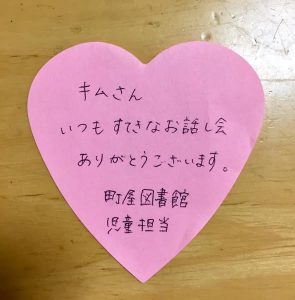 キムさん
いつもすてきなお話し会
ありがとうございます。
町屋図書館
児童担当